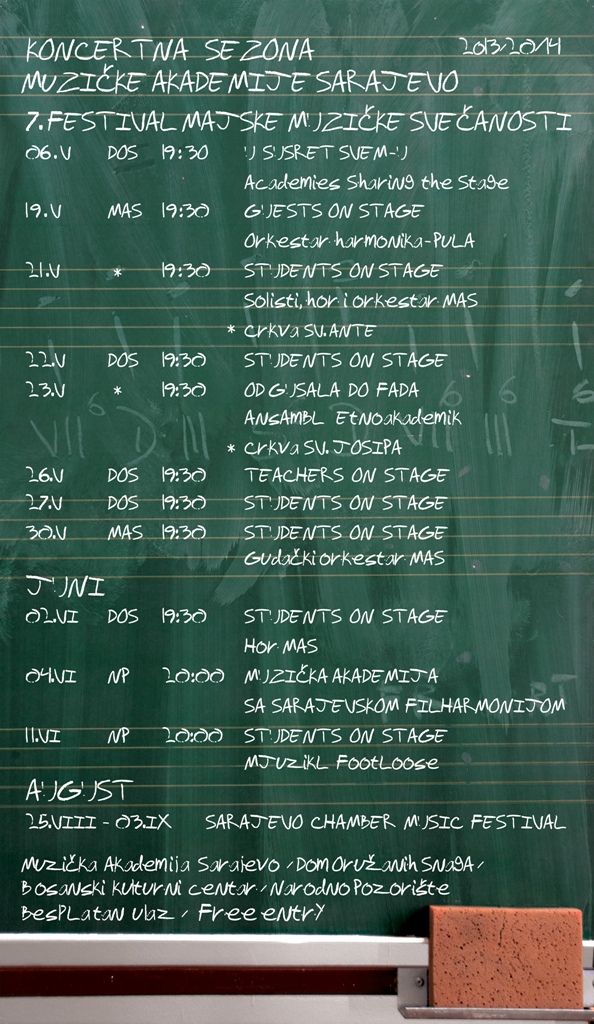 KONCERTNA SEZONA 2013/2014
MUZIČKE AKADEMIJE SARAJEVO
7. FESTIVAL MAJSKE MUZIČKE SVEČANOSTI
06.V DOS 19:30 U SUSRET SVEM-U
Academies Sharing the Stage
19.V MAS 19:30 GUESTS ON STAGE
Orkestar harmonika-PULA
21.V * 19:30 STUDENTS ON STAGE
Solisti, hor i orkestar MAS
* Crkva SV. ANTE
22.V DOS 19:30 STUDENTS ON STAGE
23.V * 19:30 OD GUSALA DO FADA
ANSAMBL Etnoakademik
* Crkva SV. JOSIPA
26.V DOS 19:30 TEACHERS ON STAGE
27.V DOS 19:30 STUDENTS ON STAGE
30.V MAS 19:30 STUDENTS ON STAGE
Gudački orkestar MAS
JUNI
02.VI DOS 19:30 STUDENTS ON STAGE
Hor MAS
04.VI NP 20:00 MUZIČKA AKADEMIJA
SA SARAJEVSKOM FILHARMONIJOM
11.VI NP 20:00 STUDENTS ON STAGE
MJUZIKL FOOTLOOSE
AUGUST
25.VIII - 03.IX SARAJEVO CHAMBER MUSIC FESTIVAL
Muzička Akademija Sarajevo / Dom Oružanih Snaga /
Bosanski Kulturni Centar / Narodno Pozorište
Besplatan ulaz / Free entry